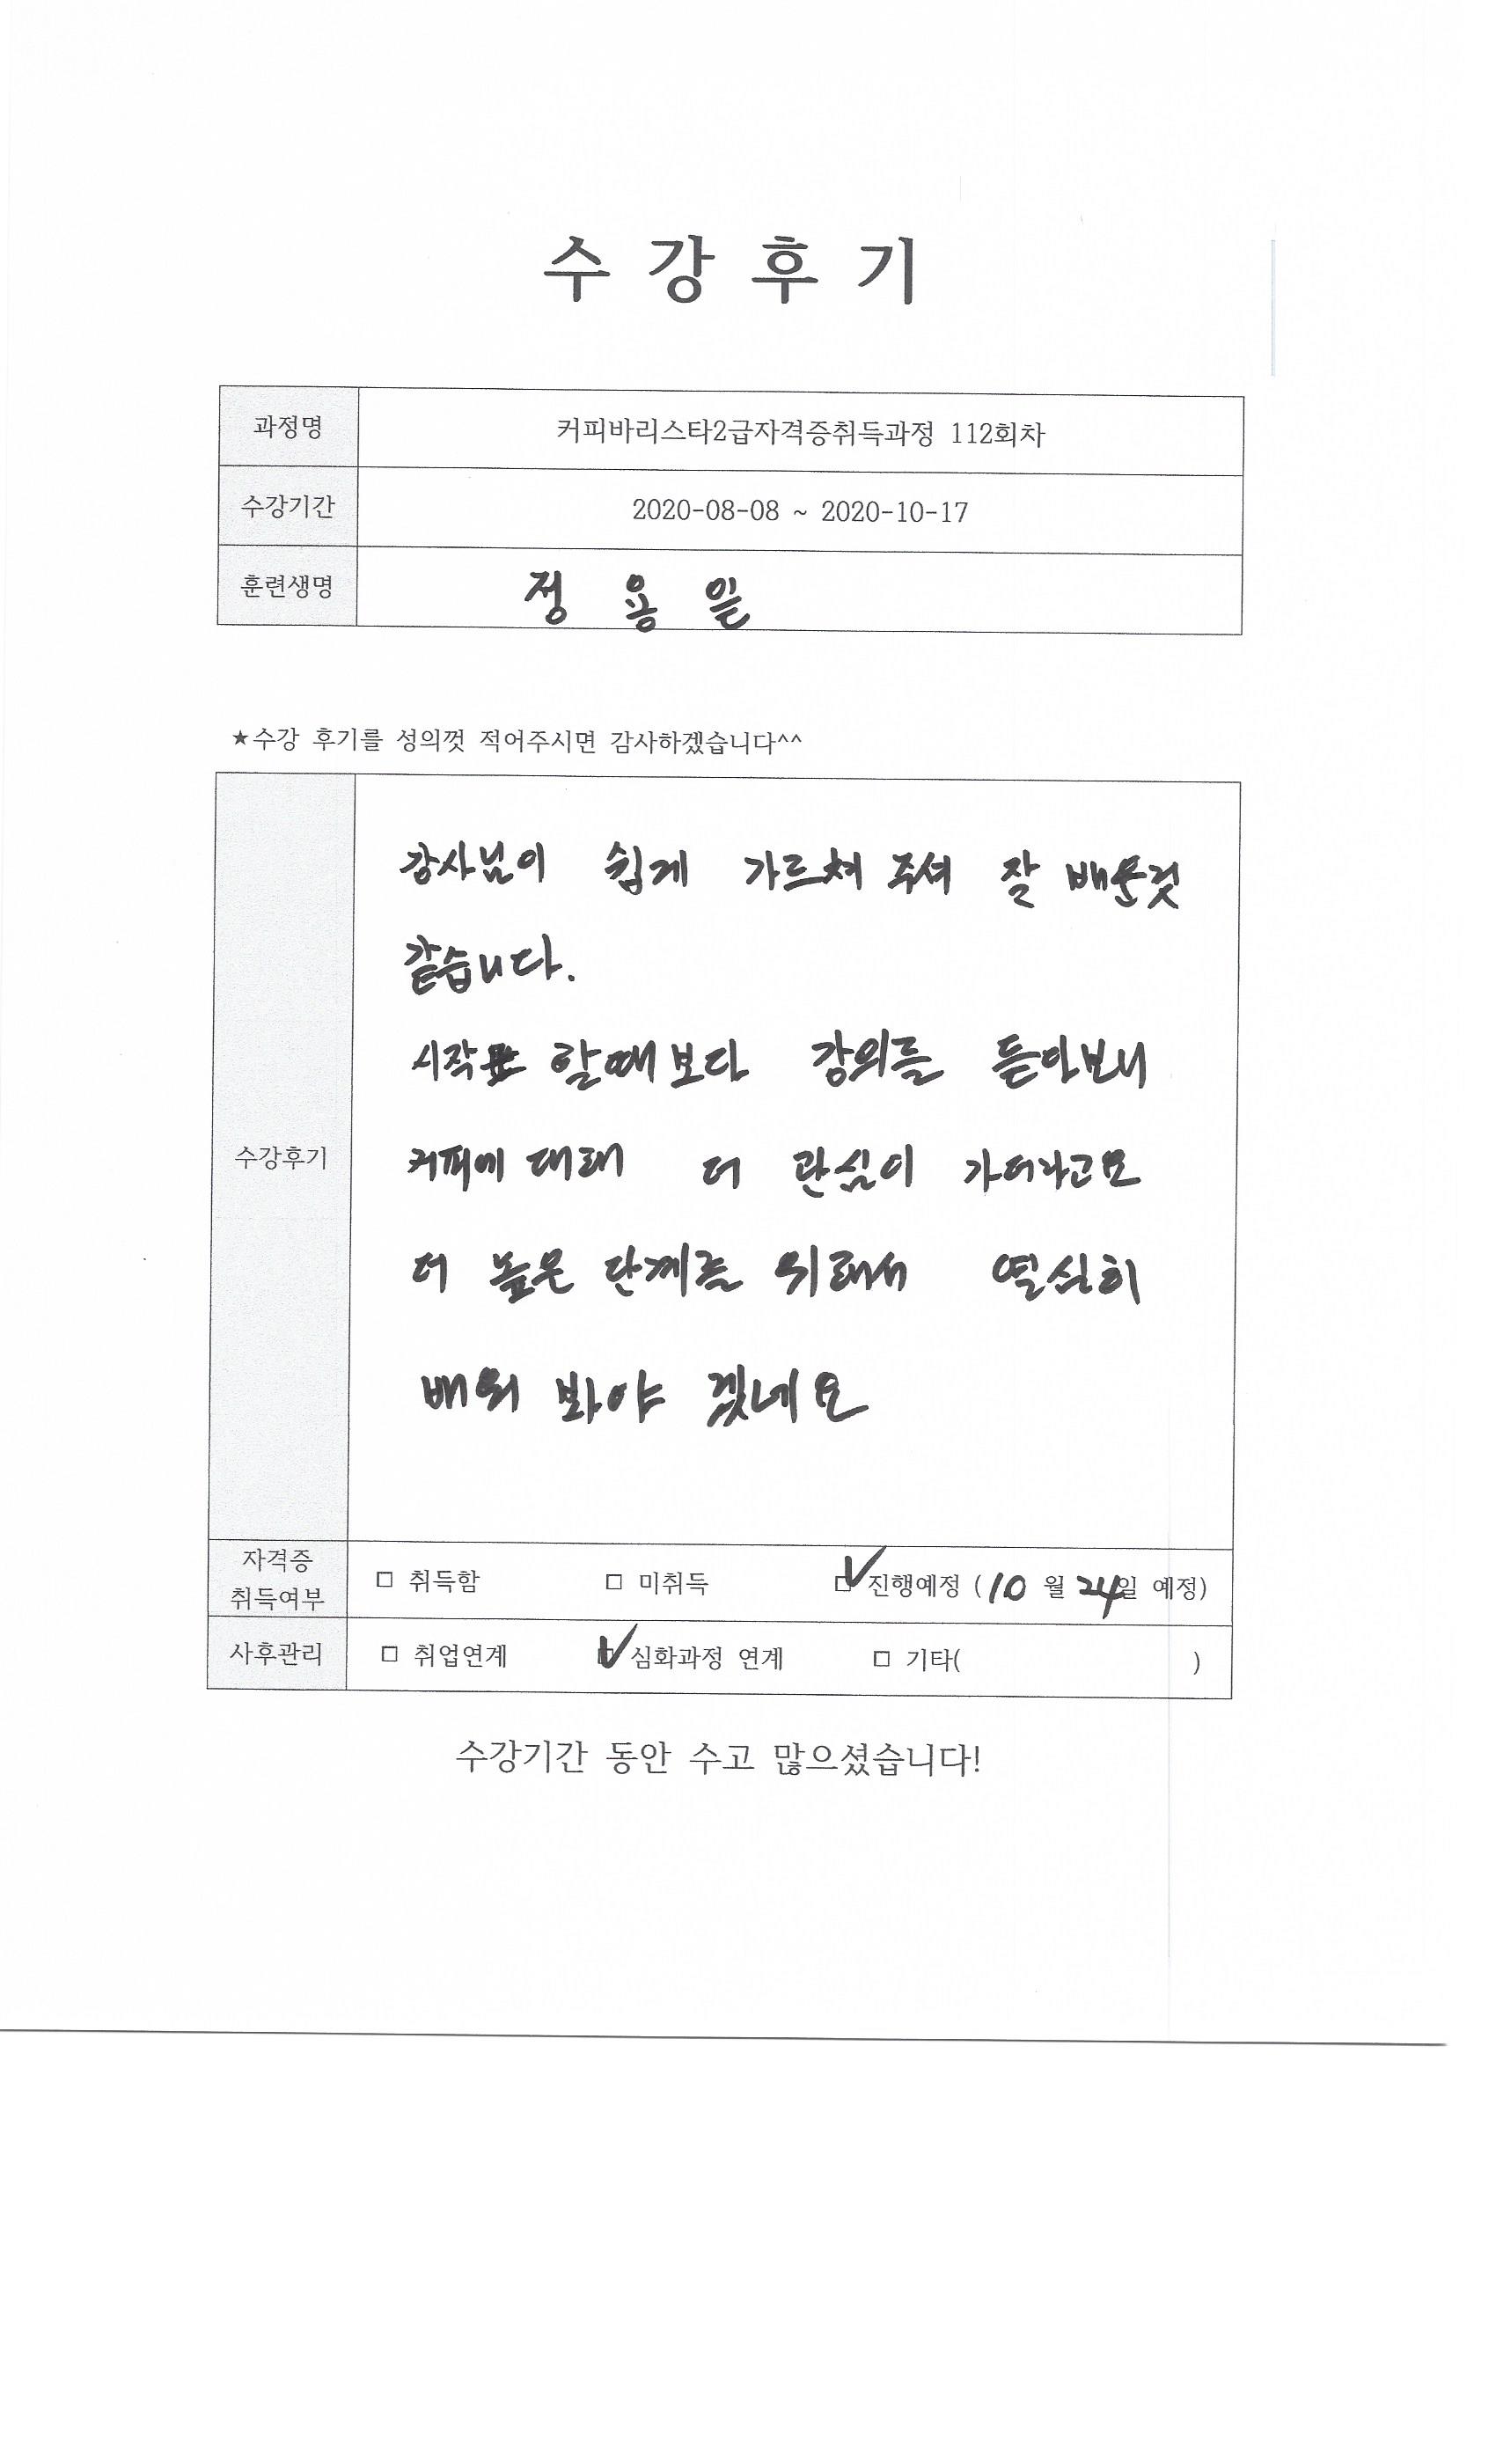 수 강 후 기
과정명 커피바리스타2급자격증취득과정 112회차
수강기간 2020-08-08 ~ 2020-10-17
훈련생명 정 용 일
★수강 후기를 성의껏 적어주시면 감사하겠습니다^^
강사님이 쉽게 가르쳐 주셔 잘 배운것
같습니다.
시작 할때보다 강의를 듣다보니
수강후기
커피에 대해 더 관심이 가더라고요
더 높은 단계를 위해서 열심히
배워 봐야 겠네요
자격증
취득여부
□ 취득함 □ 미취득 ☑ 진행예정 (10 월 24일 예정)
사후관리 □ 취업연계 ☑ 심화과정 연계 □ 기타( )
수강기간 동안 수고 많으셨습니다!